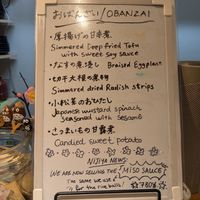 おばんざい/OBANZAI
・厚揚げの甘辛煮
Simmered Deep fried Tofu
with sweet soy sauce
・なすの煮浸し Braised Eggplant
・切干大根の煮物
Simmered dried Radish strips
・小松菜のおひたし
Japanese mustard spinach
seasoned with sesame
・さつまいもの甘露煮
Candied sweet potato
NIJIYA NEWS
WE ARE NOW SELLING THE MISO SAUCE
The same we use
for the rice balls!